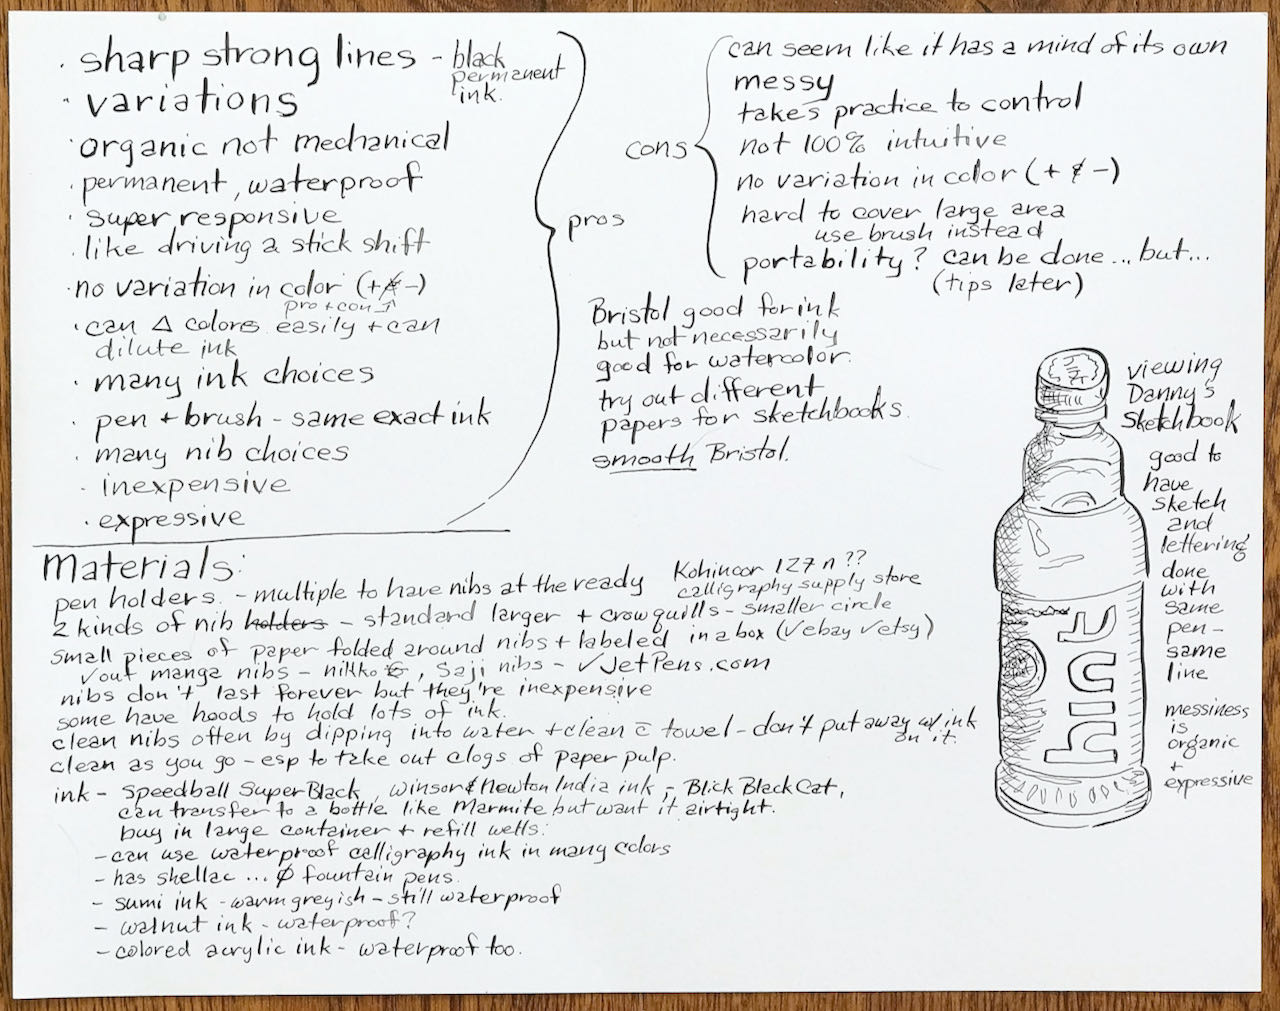 · sharp strong lines - black
permanent
ink.
· variations
· organic not mechanical
· permanent, waterproof
· super responsive
· like driving a stick shift
· no variation in color (+ & -)
pro + con ↑
· can Δ colors easily + can
dilute ink
· many ink choices
· pen + brush - same exact ink
· many nib choices
· inexpensive
· expressive
pros
cons
can seem like it has a mind of its own
messy
takes practice to control
not 100% intuitive
no variation in color (+ & -)
hard to cover large area
use brush instead
portability? can be done ... but...
(tips later)
Bristol good for ink
but not necessarily
good for watercolor.
try out different
papers for sketchbooks.
smooth Bristol.
viewing
Danny's
Sketchbook
good to
have
sketch
and
lettering
done
with
same
pen -
same
line
messiness
is
organic
+
expressive
hint
Materials:
pen holders. - multiple to have nibs at the ready Kohinoor 127 n ??
calligraphy supply store
2 kinds of nib holders - standard larger + crowquills - smaller circle
small pieces of paper folded around nibs + labeled in a box (✓ebay ✓etsy)
✓out manga nibs - nikko G, Saji nibs - ✓JetPens.com
nibs don't last forever but they're inexpensive
some have hoods to hold lots of ink.
clean nibs often by dipping into water + clean c̄ towel - don't put away w/ ink
on it.
clean as you go - esp to take out clogs of paper pulp.
ink - Speedball Super Black, Winsor & Newton India ink, - Blick Black Cat,
can transfer to a bottle like Marmite but want it airtight.
buy in large container + refill wells.
- can use waterproof calligraphy ink in many colors
- has shellac ... Ø fountain pens.
- sumi ink - warm greyish - still waterproof
- walnut ink - waterproof?
- colored acrylic ink - waterproof too.